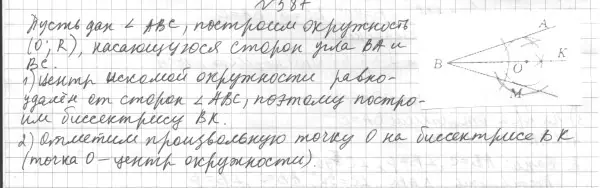 № 387
Пусть дан ∠ ABC, построим окружность
(O; R), касающуюся сторон угла BA и
BC.
1) Центр искомой окружности равно-
удалён от сторон ∠ ABC, поэтому постро-
им биссектрису BK.
2) Отметим произвольную точку O на биссектрисе BK
(точка O – центр окружности).
A
B
O
K
M